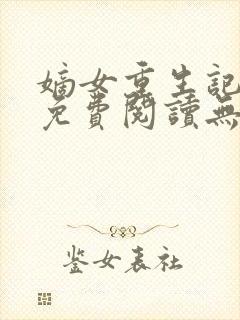 嫡女重生記
免費閱讀無
鉴女表社